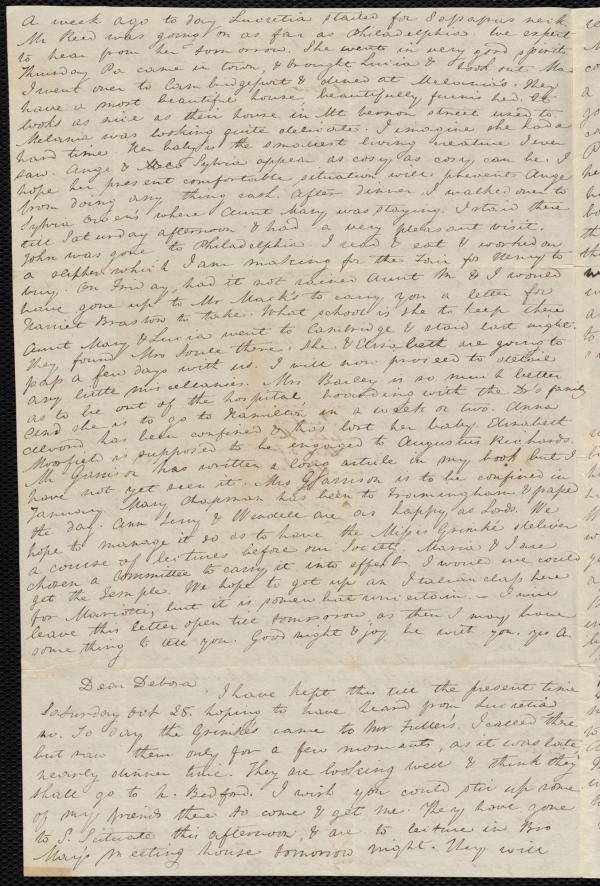 A week ago to day Lucretia started for Sassapus neck
Mr Reed was going on as far as Philadelphia. We expect
to hear from her tomorrow. She went in very good spirits
Thursday Pa came in town, & brought Lucia & took out Ma
I went over to Cambridgeport & dined at Melania's. They
have a most beautiful house, beautifully furnished. It
looks as nice as their house in Mt vernon street used to.
Melania was looking quite delicate. I imagine she had a
hard time. Her baby is the smallest living creature I ever
saw. Ange & Sylvia appear as cosy as cosy can be. I
hope her present comfortable situation will phevent Ange
from doing any thing rash. After dinner I walked over to
Sylvia Owen's where Aunt Mary was staying. I staid there
till Saturday afternoon & had a very pleasant visit.
John was gone to Philadelphia. I read & eat & worked on
a slipher which I am making for the Fair for Henry to
buy. On Friday, had it not rained Aunt M. & I would
have gone up to Mr Mack's to carry you a letter for
Harriet to take. What school is she to keep there
Aunt Mary & Lucia went to Cambridge & staid last night.
They found Mrs Soule there, she & Elisabeth are going to
pass a few days with us. I will now proceed to detail
any little miscellanies. Mrs Bailey is so much better
as to be out of the hospital, boarding with the Dr's family
and she is to go to Hamilton in a week or two. Anna
Alvord has been confined & has lost her baby. Elisabeth
is supposed to be engaged to Augustus Richards.
Mr Garrison has written a long article in my book but I
have not yet seen it. Mrs Garrison is to be confined in
January. Mary Chapman has been to Framingham & passed
the day. Ann Terry & Wendell are as happy as Lords. We
hope to manage it so as to have the Misses Grimké deliver
a course of lectures before our Society. Maria & I are
chosen a Committee to carry it into effect. I would we could
get the Temple. We hope to get up an Italian class here
for Mariotti, but it is somewhat uncertain. I will
leave this letter open till tomorrow as then I may have
some thing to tell you. Good night & joy be with you. yrs A.
Dear Debora, I have kept this till the present time
Saturday Oct 28. hoping to have heard from Lucretia
no. To day the Grimkés came to Mr Fuller's. I called there
but saw them only for a few moments, as it was late
nearly dinner time. They are looking well & think they
shall go to N. Bedford. I wish you could stir up some
of my friends there to come & get me. They have gone
to S. Scituate this afternoon, & are to lecture in Bro
May's meeting house tomorrow night. They will